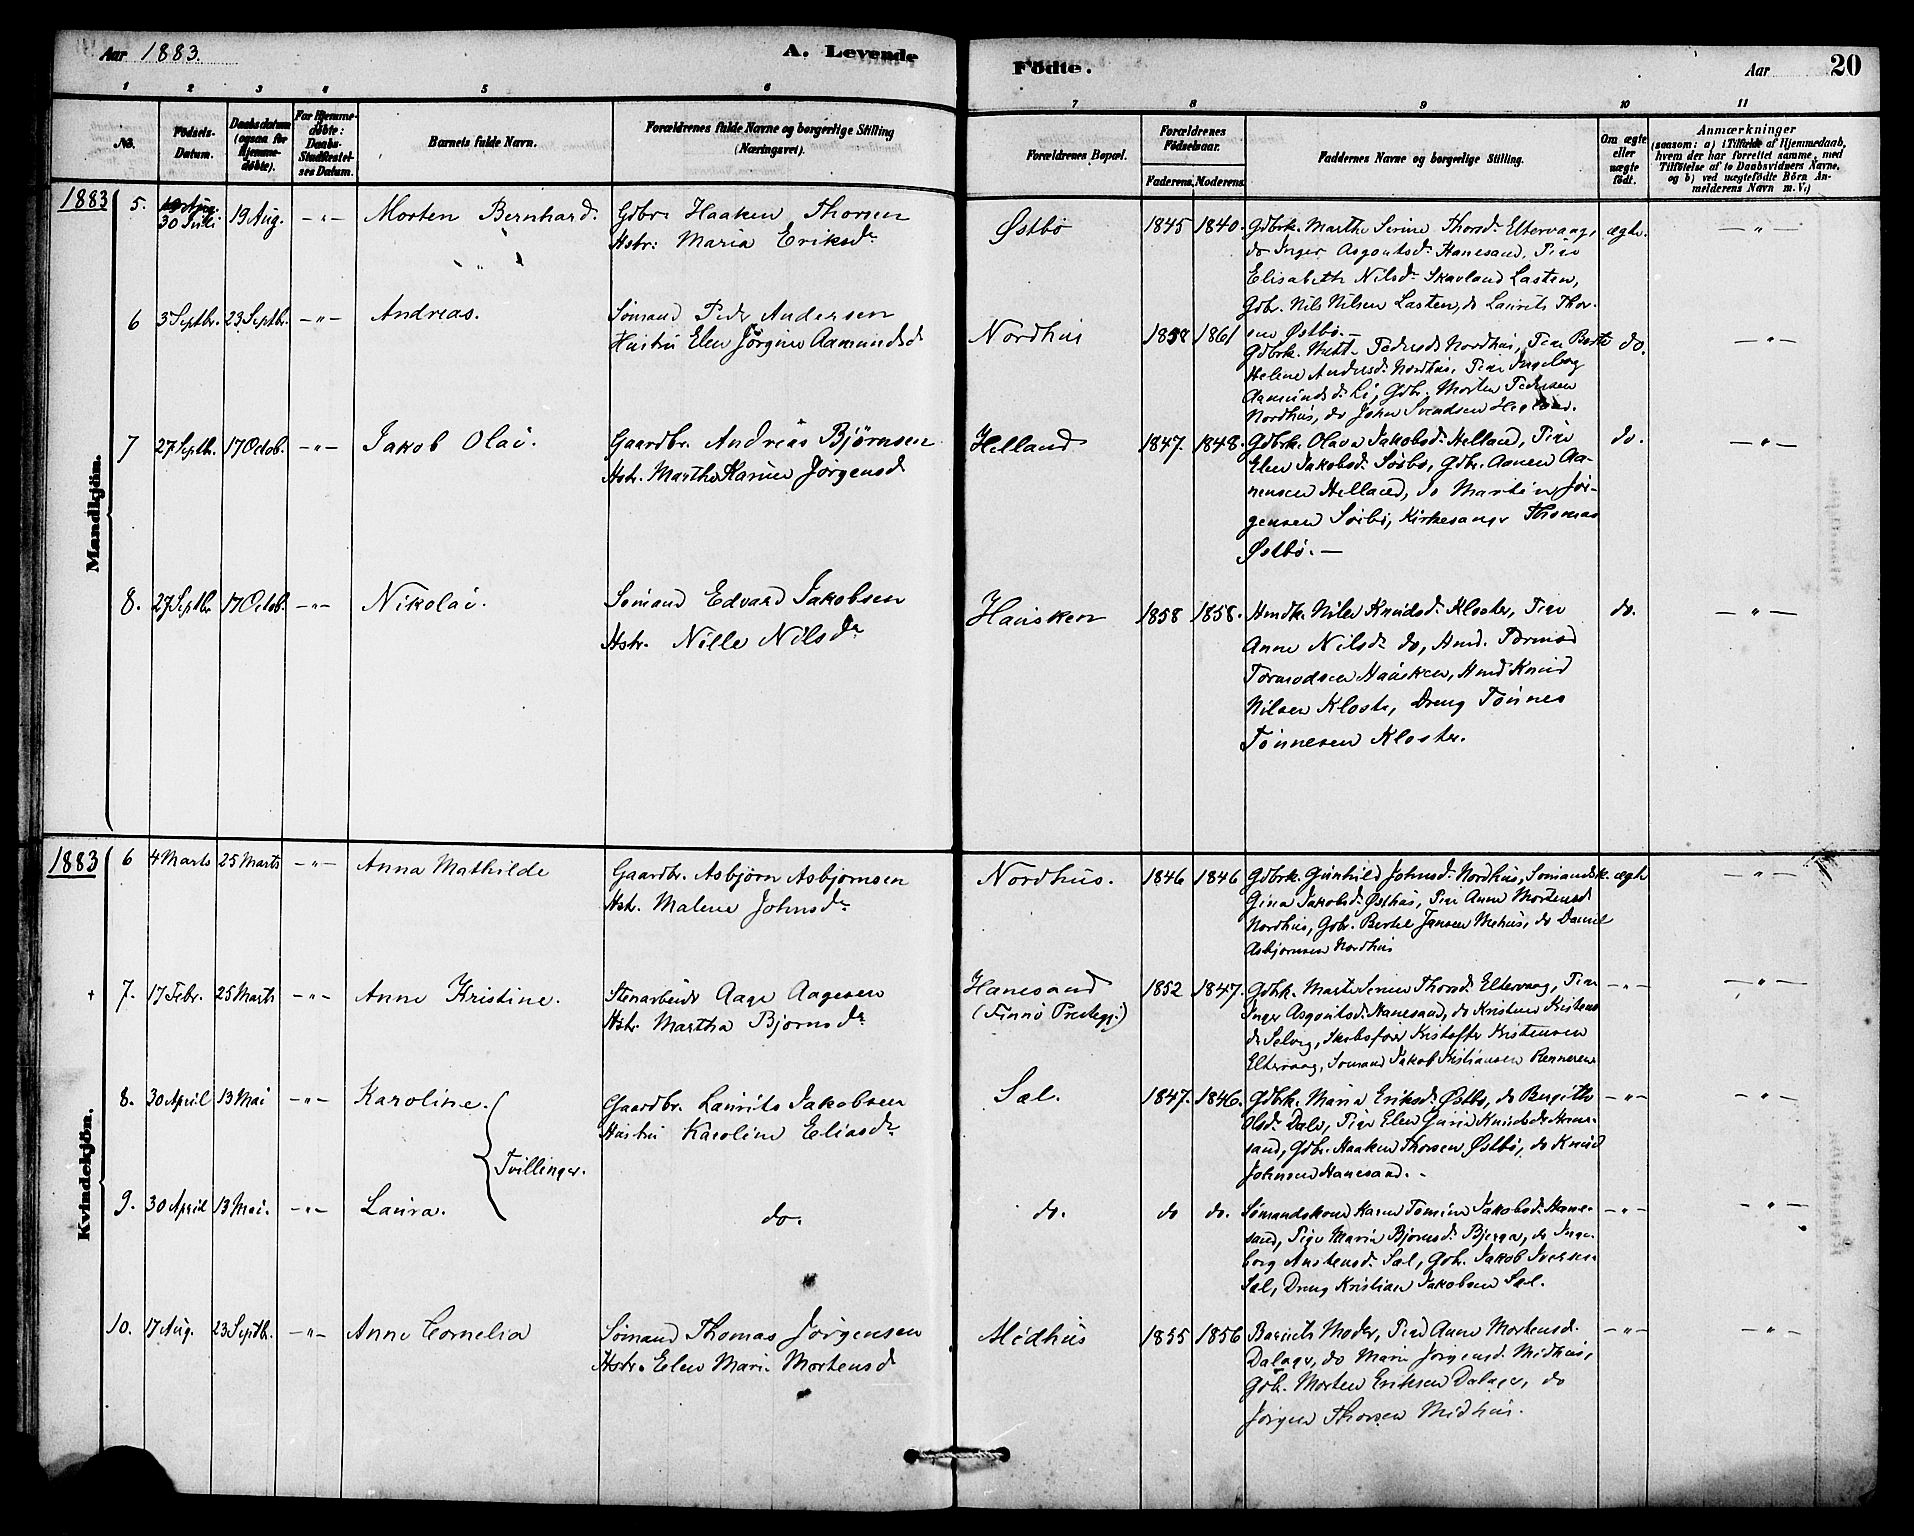 Aar 1883. A. Levende
Födte. Aar 20
1 2 3 4 5 6 7 8 9 10 11
No.
Födsels-Datum.
Daabsdatum (ogsaa for Hjemme-døbte).
For Hjemme-døbte: Daabs-Stadfæstel-ses Datum.
Barnets fulde Navn.
Forældrenes fulde Navne og borgerlige Stilling (Næringsvei).
Forældrenes Bopæl.
Forældrenes Födselsaar.
Faderens. Moderens.
Faddernes Navne og borgerlige Stilling.
Om ægte eller uægte födt.
Anmærkninger
(saasom: a) i Tilfælde af Hjemmedaab, hvem der har forrettet samme, med Tilföielse af to Daabsvidners Navne, og b) ved uægtefödte Börn An-melderens Navn m. V.)
Mandkjön.
1883 5. 30 Juli 19 Aug. -„- Morten Bernhard. Gdbr. Haaken Thorsen
Hstr: Maria Eriksdr
Østbø 1845 1840. Gdbrk. Marthe Serine Thorsdr Eltervaag, ægte. -„-
do Inger Asgautsdr Hanesand, Pige
Elisabeth Nilsdr Skavland Lasten,
Gdbr. Nils Nilsen Lasten, do Laurits Thor-
sen Østbø.-
6 3 Septbr. 23 Septbr. -„- Andreas. Sömand Peder Andersen
Hustru Elen Jørgine Aamundsd
Nordhus 1858 1861
Gdbrk. Pedersd Nordhus, Pige Berthe do. -„-
Helene Andersdr Nordhus, Pige Ingeborg
Aamundsdr Li, Gdbr. Morten Pedersen
Nordhus, do John Svendsen
7 27 Septb. 17 Octob. -„- Jakob Olai. Gaardbr. Andreas Bjørnsen
Hstr. Marthe Karine Jørgensd
Helland 1847. 1848. Gdbrk. Olava Jakobsdr Helland, Pige do. -„-
Elen Jakobsdr Sørbø, Gdbr. Aanen Aa-
nensen Helland, do Martin Jør-
gensen Sørbø, Kirkesanger Thomas
Østbø.-
8. 27 Septb. 17 Octob. -„- Nikolai. Sömand Edvard Jakobsen
Hstr. Nille Nilsdr
Hausken 1858 1858. Hmdk. Nille Knudsdr Kloster, Pige do. -„-
Anne Nilsdr do, Hmd. Tormod
Tormodsen Hausken, Hmd Knud
Nilsen Kloster, Dreng Tönnes
Tönnesen Kloster.
Kvindekjön.
1883 6 4 Marts 25 Marts -„- Anna Mathilde Gaardbr. Asbjørn Asbjørnsen
Hstr. Malene Johnsdr
Nordhus. 1846 1846 Gdbrk. Gunhild Johnsdr Nordhus, Sömandsk. ægte -„-
Gina Jakobsdr Østhus, Pige Anne Mortensd
Nordhus, Gdbr. Bertel Jansen Mehus, do Daniel
Asbjørnsen Nordhus
7. 17 Febr. 25 Marts -„- Anne Kristine. Stenarbeider Aage Aagesen
Hstr. Martha Bjørnsdr
Hanesand 1852 1847. Gdbrk. Marte Serine Thorsdr Eltervaag, Pige -„- -„-
(Finnö Prestegj.)
Inger Asgautsdr Hanesand, do Kristine Kristens
dr Selvig, Skibsfører Kristoffer Kristensen
Eltervaag, Sömand Jakob Kristiansen Renneren
8. 30 April 13 Mai -„- Karoline. Gaardbr. Laurits Jakobsen
Hustru Karoline Eliasdr
Tvillinger.
Sæl. 1847. 1846. Gdbrk. Maria Eriksdr Østbø, do Bergithe -„- -„-
Olsdr Dale, Pige Elen Gurie Knudsdr Hane-
sand, Gdbr. Haaken Thorsen Østbø, do Knud
Johnsen Hanesand.-
9. 30 April 13 Mai. -„- Laura. do.
do. do do. Sömandskone Karen Tomine Jakobsdr Hane- -„- -„-
sand, Pige Maria Bjørnsdr Bjerga, do Inge-
borg Austensdr Sæl, Gdbr. Jakob Iversen
Sæl, Dreng Kristian Jakobsen Sæl.
10. 17 Aug. 23 Septb. -„- Anne Cornelia Sömand Thomas Jørgensen
Hstr. Elen Marie Mortensd
Midhus 1855 1856 Barnets Moder, Pige Anne Mortensdr -„- -„-
Dalager, do Marie Jørgensdr Midhus,
Gdbr. Morten Eriksen Dalager, do
Jørgen Thorsen Midhus.